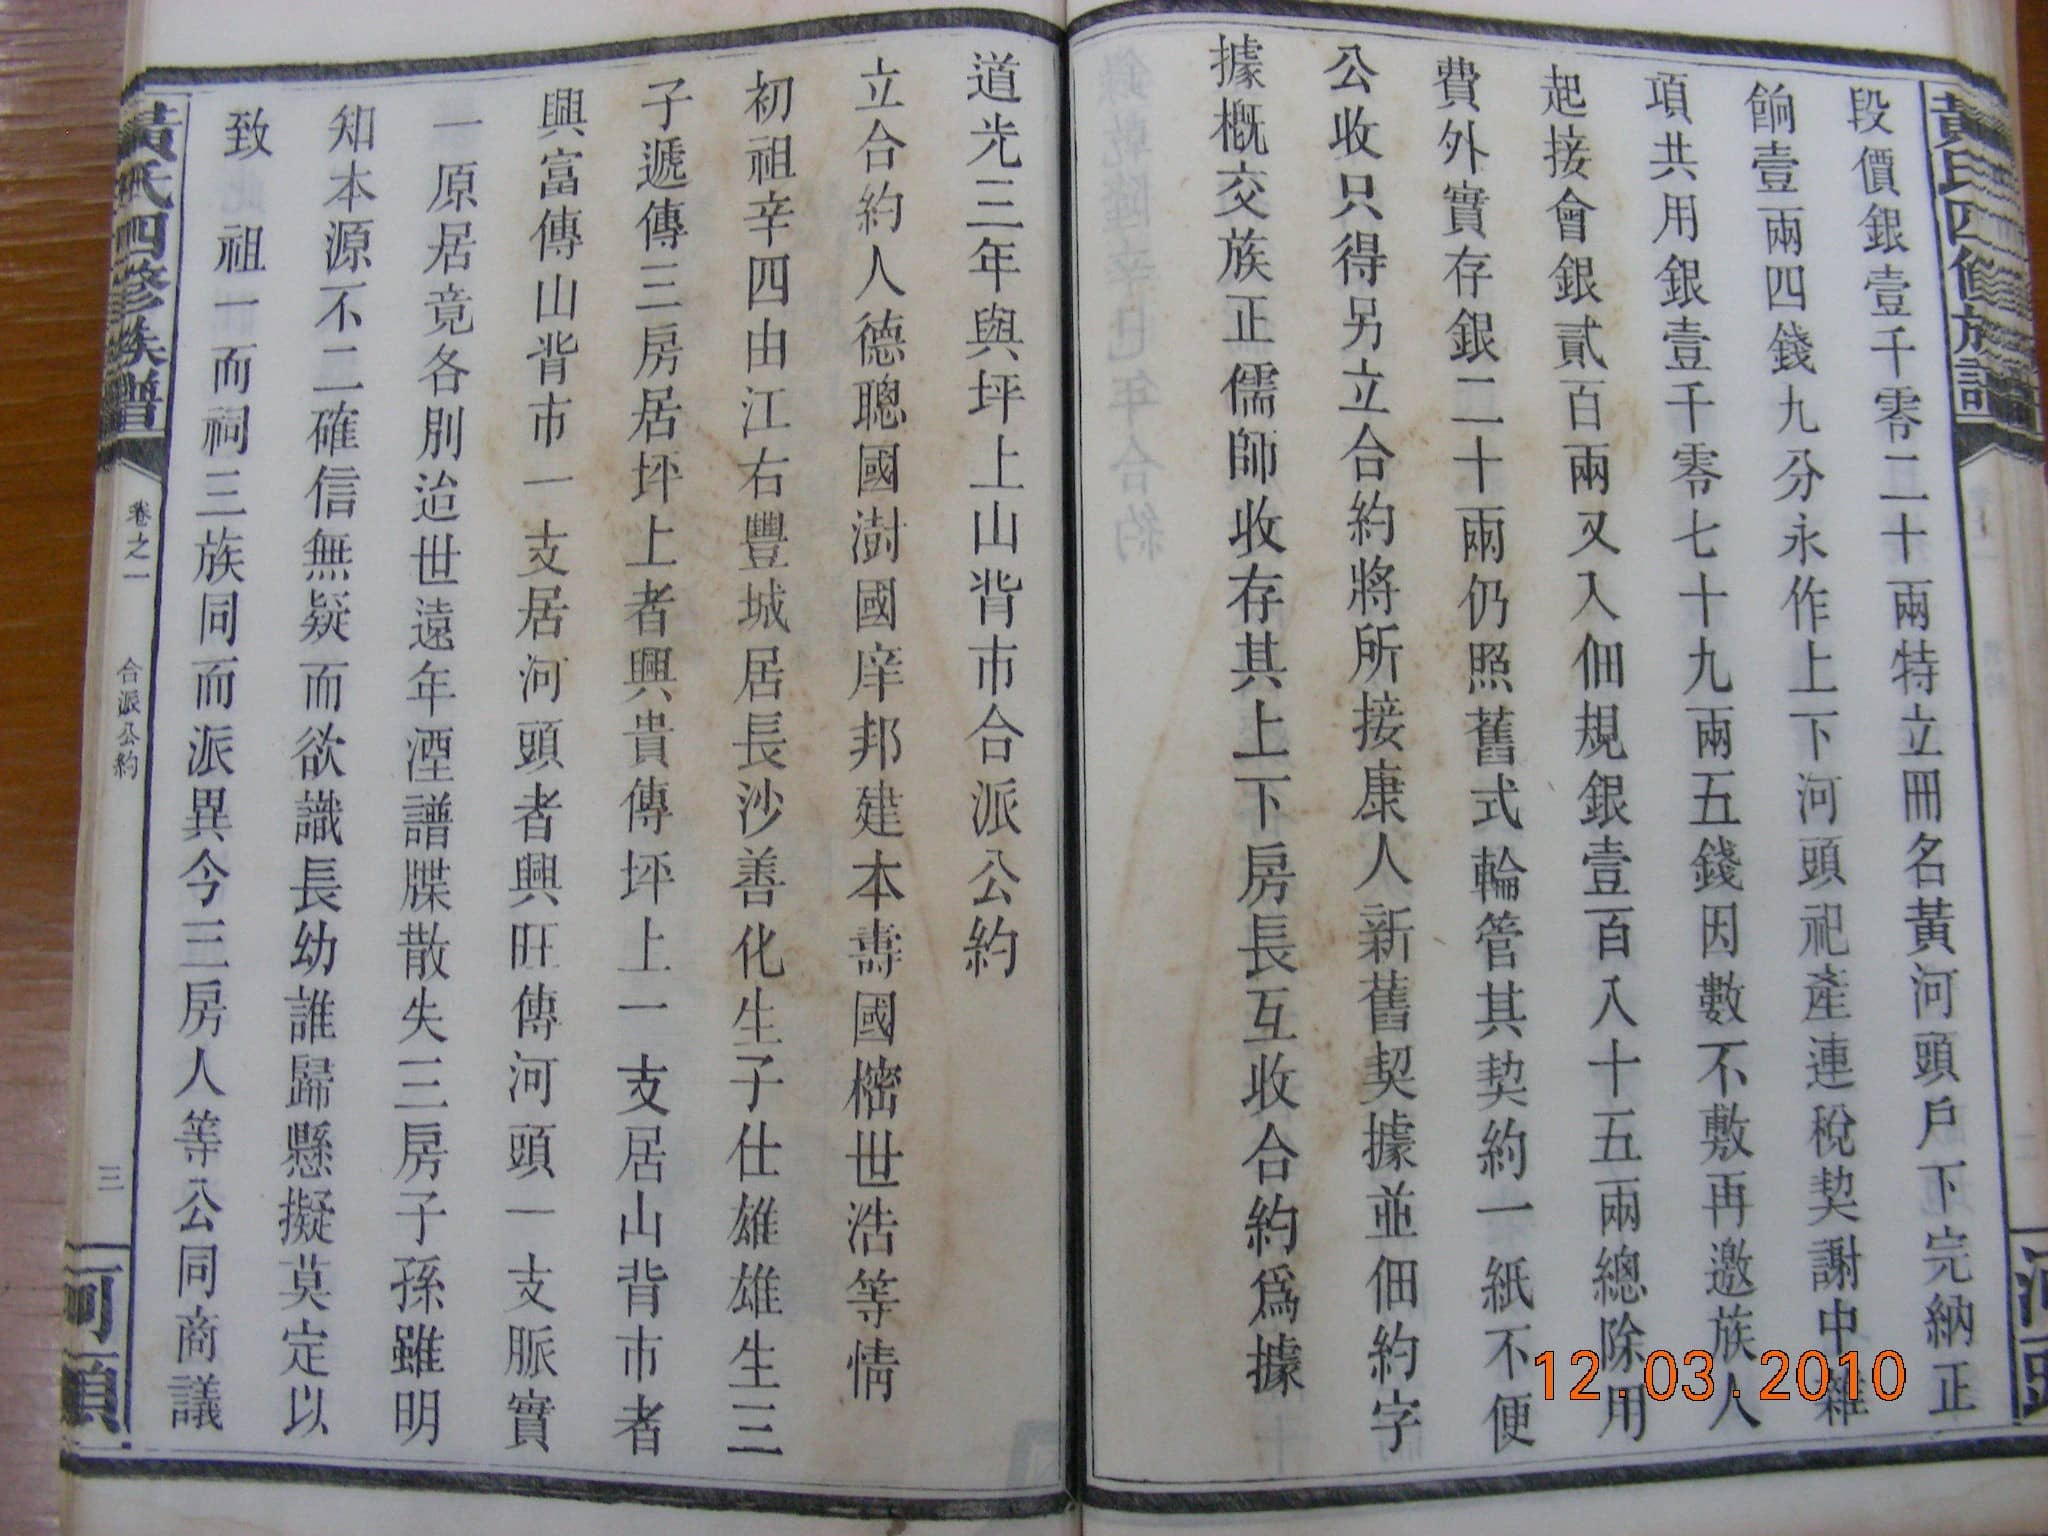 黃氏四修族譜
段價銀壹千零二十兩特立冊名黃河頭戶下完納正
餉壹兩四錢九分永作上下河頭祀產連稅契謝中雜
項共用銀壹千零七十九兩五錢因數不敷再邀族人
起接會銀貳百兩又入佃規銀壹百八十五兩總除用
費外實存銀二十兩仍照舊式輪管其契約一紙不便
公收只得另立合約將所接康人新舊契據並佃約字
據概交族正儒師收存其上下房長互收合約為據
道光三年與坪上山背市合派公約
立合約人德聰國澍國庠邦建本壽國櫁世浩等情
初祖辛四由江右豐城居長沙善化生子仕雄雄生三
子遞傳三房居坪上者興貴傳坪上一支居山背市者
興富傳山背市一支居河頭者興旺傳河頭一支脈實
一原居竟各別迨世遠年湮譜牒散失三房子孫雖明
知本源不二確信無疑而欲識長幼誰歸懸擬莫定以
致 祖一而祠三族同而派異今三房人等公同商議
黃氏四修族譜
卷之一
合派公約
三
河頭
12.03.2010